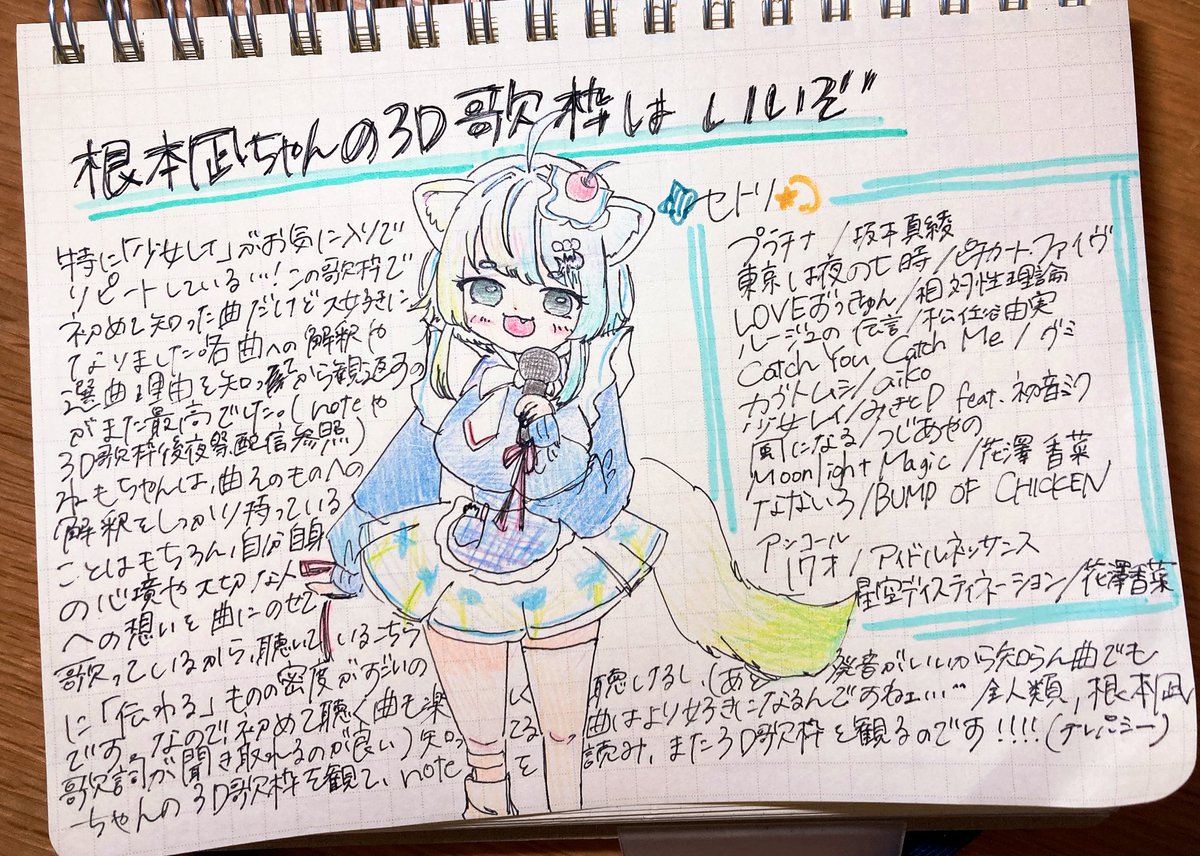 根本凪ちゃんの3D歌枠は いいぞ
特に「少女レイ」がお気に入りで
リピートしている…!この歌枠で
初めて知った曲だけど大好きに
なりました。各曲への解釈や
選曲理由を知ってから観返すの
がまた最高でした。(noteや
3D歌枠後夜祭配信参照)
ねもちゃんは、曲そのものへの
解釈をしっかり持っている
ことはもちろん、自分自身
の心境や大切な人
への想いを曲にのせて
歌っているから、聴いているこちら
に「伝わる」ものの密度がすごいの
です。なので初めて聴く曲も楽しく聴けるし、(あと発音がいいから知らん曲でも
歌詞が聞き取れるのが良い)知ってる曲はより好きになるんですねェ…… 全人類、根本凪
ちゃんの3D歌枠を観て、noteを読み、また3D歌枠を観るのです!!!!(テレパシー)
セトリ
プラチナ/坂本真綾
東京は夜の七時/ピチカート・ファイヴ
LOVEずっきゅん/相対性理論
ルージュの伝言/松任谷由実
Catch You Catch Me/グミ
カブトムシ/aiko
少女レイ/みきとP feat.初音ミク
風になる/つじあやの
Moonlight Magic/花澤香菜
なないろ/BUMP OF CHICKEN
アンコール
リワオ/アイドルネッサンス
星空ディスティネーション/花澤香菜